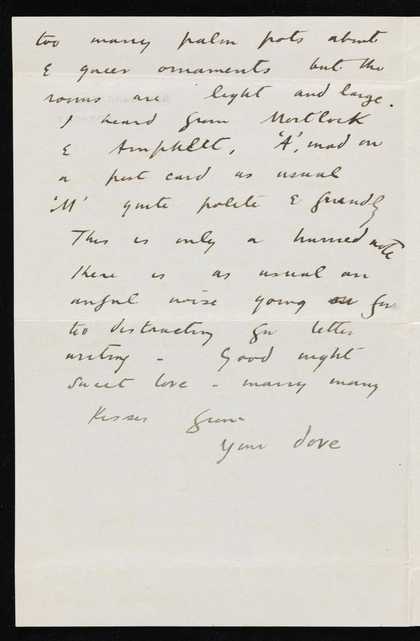 too many palm pots about
& queer ornaments but the
rooms are light and large.
I heard from Mortlock
& Amphlett, 'A', mad on
a post card as usual
'M' quite polite & friendly
This is only a hurried note
there is as usual an
awful noise going on far
too distracting for letter
writing - Good night
sweet love - many many
kisses from
your dove